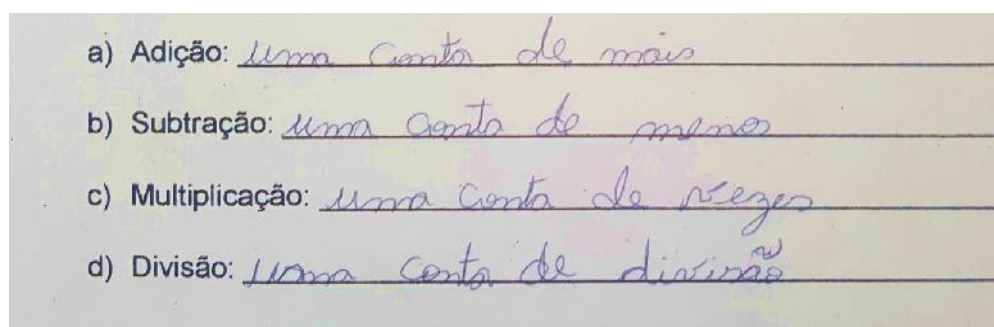 a) Adição: uma conta de mais
b) Subtração: uma conta de menos
c) Multiplicação: uma conta de vezes
d) Divisão: uma conta de divisão